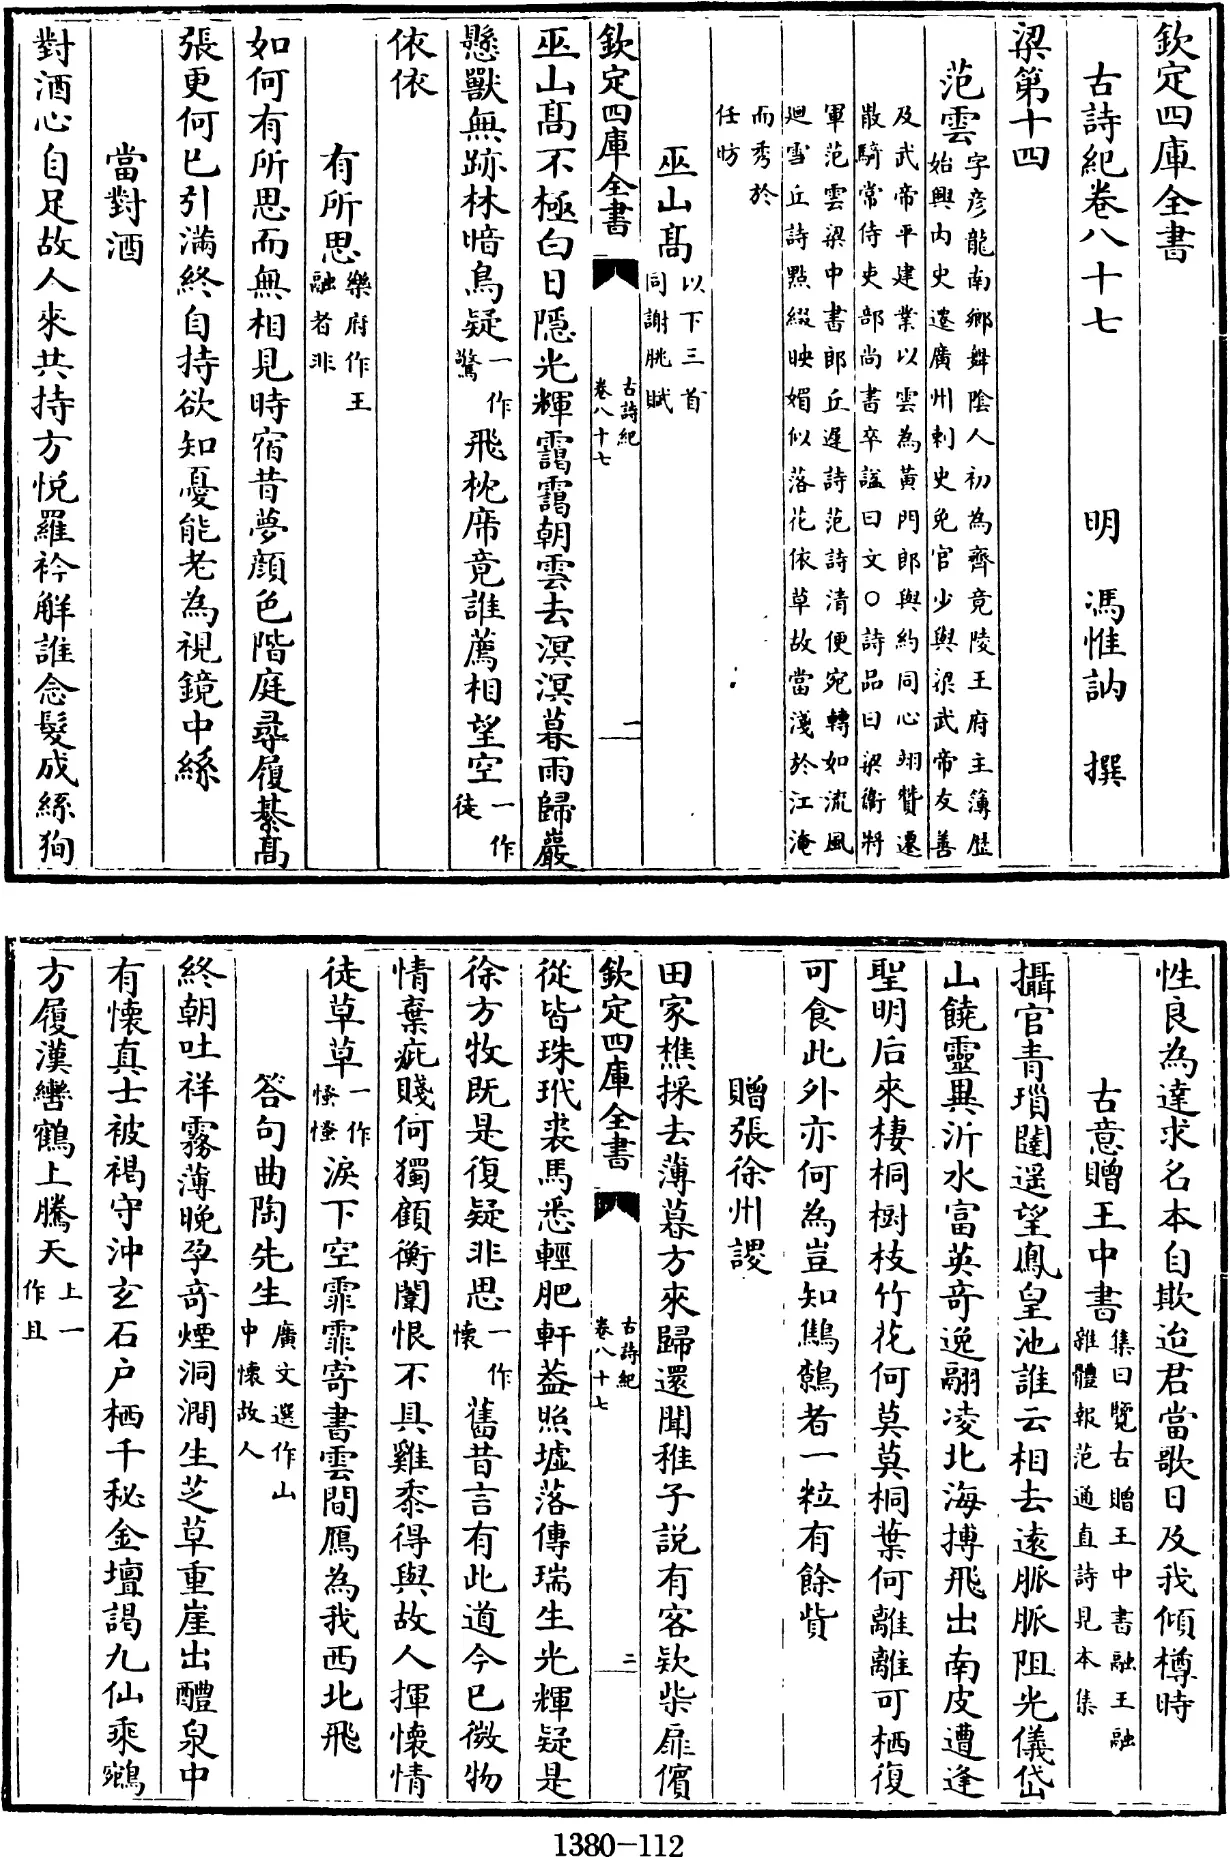 欽定四庫全書
古詩紀卷八十七 明 馮惟訥 撰
梁第十四
范雲字彦龍南鄉舞陰人初為齊竟陵王府主簿歴
始興内史遷廣州刺史免官少與梁武帝友善
及武帝平建業以雲為黄門郎與約同心翊贊遷
散騎常侍吏部尚書卒諡曰文○詩品曰梁衛將
軍范雲梁中書郎丘遲詩范詩清便宛轉如流風
廻雪丘詩點綴映媚似落花依草故當淺於江淹
而秀於
任昉
巫山髙以下三首
同謝朓賦
欽定四庫全書 古詩紀
卷八十七 一
巫山髙不極白日隱光輝靄靄朝雲去溟溟暮雨歸巖
懸獸無跡林暗鳥疑一作
驚飛枕席竟誰薦相望空一作
徒
依依
有所思樂府作王
融者非
如何有所思而無相見時宿昔夢顔色階庭尋履綦髙
張更何已引滿終自持欲知憂能老為視鏡中絲
當對酒
對酒心自足故人來共持方悦羅衿解誰念髮成絲狥
性良為達求名本自欺迨君當歌日及我傾樽時
古意贈王中書集曰覽古贈王中書融王融
雜體報范通直詩見本集
攝官青瑣闥遥望鳳皇池誰云相去遠脈脈阻光儀岱
山饒靈異沂水富英奇逸翮凌北海摶飛出南皮遭逢
聖明后來棲桐樹枝竹花何莫莫桐葉何離離可栖復
可食此外亦何為豈知鷦鷯者一粒有餘貲
贈張徐州謖
田家樵採去薄暮方來歸還聞稚子説有客欵柴扉儐
欽定四庫全書 古詩紀
卷八十七 二
從皆珠玳裘馬悉輕肥軒葢照墟落傳瑞生光輝疑是
徐方牧既是復疑非思一作
懷舊昔言有此道今已微物
情棄疵賤何獨顧衡闈恨不具雞黍得與故人揮懷情
徒草草一作
慅慅淚下空霏霏寄書雲間鴈為我西北飛
答句曲陶先生廣文選作山
中懷故人
終朝吐祥霧薄晚孕奇煙洞澗生芝草重崖出醴泉中
有懷真士被褐守沖玄石户栖千秘金壇謁九仙乘鵷
方履漢轡鶴上騰天上一
作且
1380-112